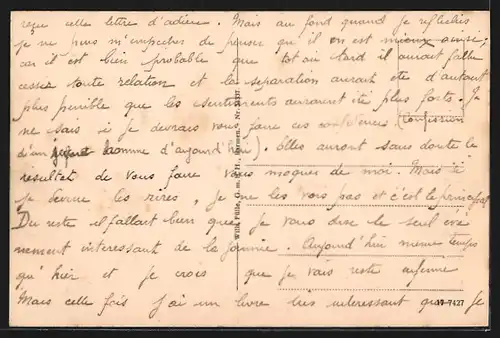 reçue cette lettre d'adieu. Mais au fond quand je réfléchis
je ne puis m'empêcher de penser qu'il en est mieux ainsi;
car il est bien probable que tôt ou tard il aurait fallu
cesser toute relation et la séparation aurait été d'autant
plus pénible que les sentiments auraient été plus forts. Je
ne sais si je devrais vous faire ces confidences (confession
d'un homme d'aujourd'hui). Elles auront sans doute le
resultat de vous faire vous moquer de moi. Mais si
je devine les rires, je ne les vois pas et c'est le principal
Du reste il fallait bien que je vous dise le seul évé
nement interessant de la journée. Aujourd'hui meme temps
qu'hier et je crois que je vais rester enfermé
Mais cette fois j'ai un livre très interessant que je
17-7427